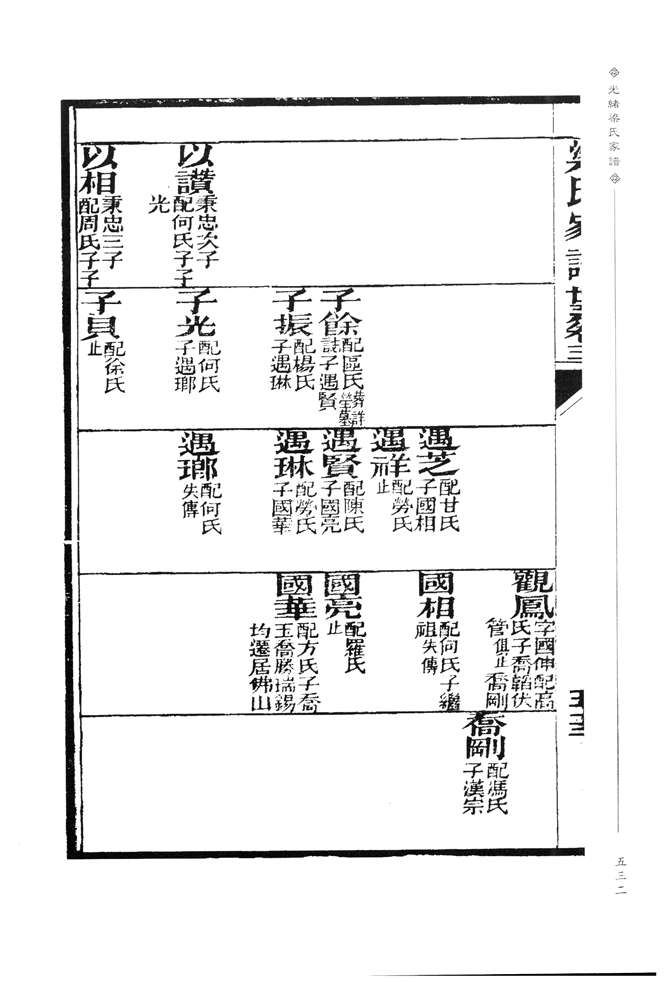 光緒梁氏家譜
梁氏家譜
以讚 秉忠次子
配何氏子子
光
以相 秉忠三子
配周氏子子
子餘 配區氏葬詳塋墓
誌子遇賢
子振 配楊氏
子遇琳
子光 配何氏
子遇瑯
子貝 配徐氏
止
遇芝 配甘氏
子國相
遇祥 配勞氏
止
遇賢 配陳氏
子國亮
遇琳 配勞氏
子國華
遇瑯 配何氏
失傳
觀鳳 字國伸配高
氏子喬韜伏
管俱止喬剛
國相 配何氏子繼
祖失傳
國亮 配羅氏
止
國華 配方氏子喬
玉喬勝瑞錫
均遷居佛山
喬剛 配馮氏
子漢宗
五三二